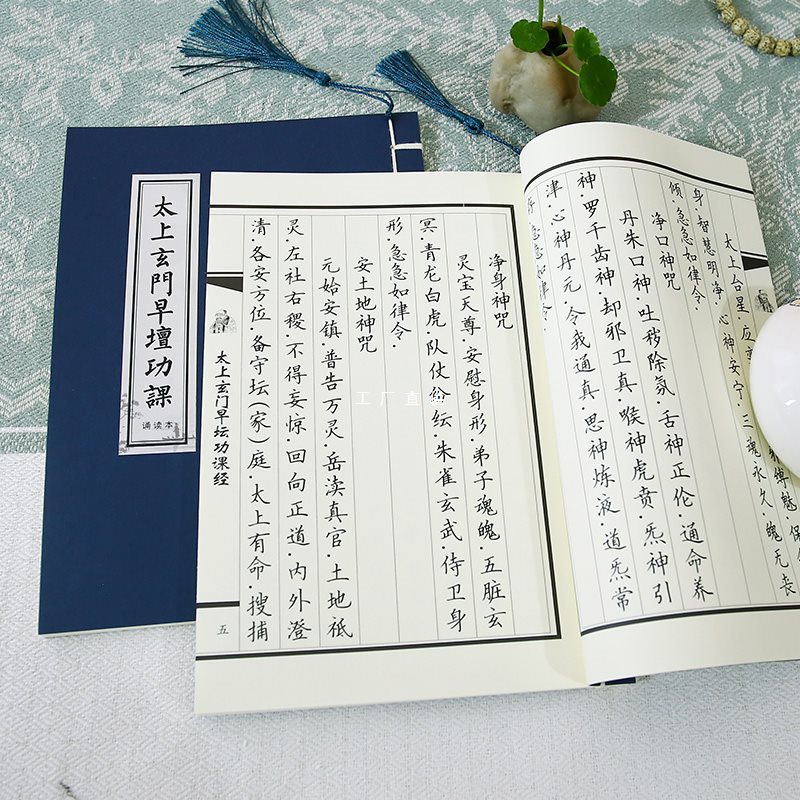 太上玄門早壇功課
诵读本
太上台星·应
缚魅·保
身·智慧明净·心神安宁·三魂永久·魄无丧
倾·急急如律令·
净口神咒
丹朱口神·吐秽除氛·舌神正伦·通命养
神·罗千齿神·却邪卫真·喉神虎贲·炁神引
津·心神丹元·令我通真·思神炼液·道炁常
急如律令·
净身神咒
灵宝天尊·安慰身形·弟子魂魄·五脏玄
冥·青龙白虎·队仗纷纭·朱雀玄武·侍卫身
形·急急如律令·
安土地神咒
元始安镇·普告万灵·岳渎真官·土地祇
灵·左社右稷·不得妄惊·回向正道·内外澄
清·各安方位·备守坛(家)庭·太上有命·搜捕
太上玄门早坛功课经
五
工厂直